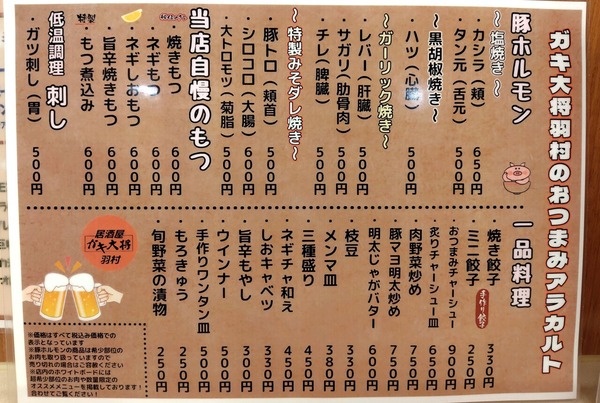 ガキ大将羽村のおつまみアラカルト
豚ホルモン
〜塩焼き〜
・カシラ(頬) 650円
・タン元(舌元) 500円
〜黒胡椒焼き〜
・ハツ(心臓) 500円
〜ガーリック焼き〜
・レバー(肝臓) 500円
・サガリ(肋骨肉) 500円
・チレ(脾臓) 500円
〜特製みそダレ焼き〜
・豚トロ(頬首) 500円
・シロコロ(大腸) 600円
・大トロモツ(菊脂) 500円
当店自慢のもつ
・焼きもつ 600円
・ネギもつ 600円
・ネギしおもつ 600円
・旨辛焼きもつ 600円
特製
・もつ煮込み 600円
低温調理 刺し
・ガツ刺し(胃) 500円
一品料理
・焼き餃子 330円
・ミニ餃子 250円
手作り餃子
・おつまみチャーシュー 900円
・炙りチャーシュー皿 650円
・肉野菜炒め 750円
・豚マヨ明太炒め 750円
・明太じゃがバター 600円
・枝豆 330円
・メンマ皿 380円
・三種盛り 450円
・ネギチャ和え 450円
・しおキャベツ 300円
・旨辛もやし 300円
・ウインナー 500円
・手作りワンタン皿 500円
・もろきゅう 250円
・旬野菜の漬物 250円
居酒屋
ガキ大将
羽村
※価格はすべて税込み価格での
表示となっています
※豚ホルモンの商品は希少部位の
お肉も取り扱っていますので
売り切れの場合はご容赦ください
※店内のホワイトボードには
超希少部位のお肉や数量限定の
オススメメニューを掲載しております!
合わせてご覧ください!